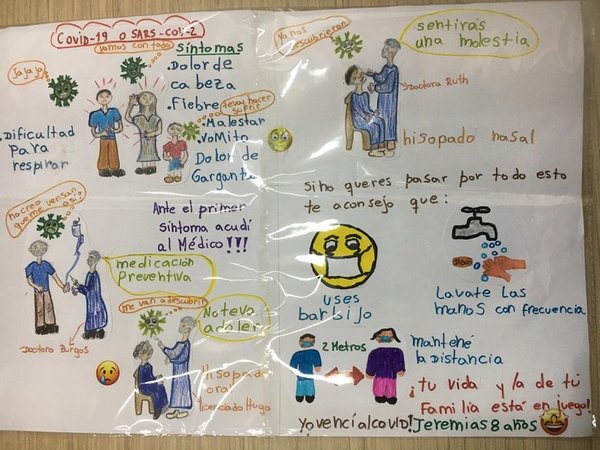 COVID-19 o SARS-COV-2
Vamos con todo
síntomas
Ja ja ja
.Dolor de
cabeza
.Fiebre
.Malestar
.Vomito
Dolor de
Garganta
.Dificultad
para
respirar
Ante el primer
síntoma acudí
al Médico!!!
medicación
Preventiva
Doctora Burgos
me van a descubrir
No te va
a doler
Hisopado
oral
Licenciado Hugo
Ya nos
descubrieron
sentirás
una molestia
Doctora Ruth
hisopado nasal
Si no queres pasar por todo esto
te aconsejo que:
uses
barbijo
Jabón
Lavate las
manos con frecuencia
2 Metros
mantené
la Distancia
¡tu vida y la de tú
Familia está en juego!
Yo vencí al covid! Jeremias 8 años